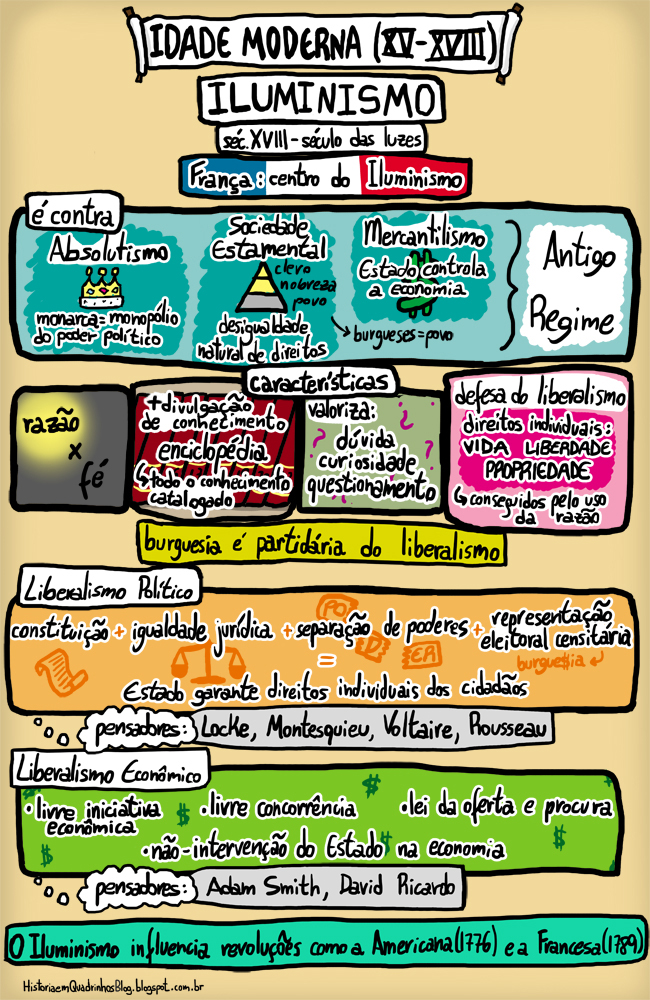 IDADE MODERNA (XV-XVIII)
ILUMINISMO
séc. XVIII - século das luzes
França: centro do Iluminismo
é contra
Absolutismo
monarca = monopólio
do poder político
Sociedade
Estamental
clero
nobreza
povo
desigualdade
natural de direitos
↳ burgueses = povo
Mercantilismo
Estado controla
a economia
$
Antigo
Regime
características
razão
x
fé
+ divulgação
de conhecimento
enciclopédia
↳ todo o conhecimento
catalogado
valoriza:
dúvida
curiosidade
questionamento
? ? ? ?
defesa do liberalismo
direitos individuais:
VIDA LIBERDADE
PROPRIEDADE
↳ conseguidos pelo uso
da razão
burguesia é partidária do liberalismo
Liberalismo Político
constituição + igualdade jurídica + separação de poderes + representação
eleitoral censitária
burgue$ia ↵
=
Estado garante direitos individuais dos cidadãos
pensadores: Locke, Montesquieu, Voltaire, Rousseau
Liberalismo Econômico
• livre iniciativa
econômica
• livre concorrência
• lei da oferta e procura
• não-intervenção do Estado na economia
pensadores: Adam Smith, David Ricardo
O Iluminismo influencia revoluções como a Americana (1776) e a Francesa (1789)
HistoriaemQuadrinhosBlog.blogspot.com.br